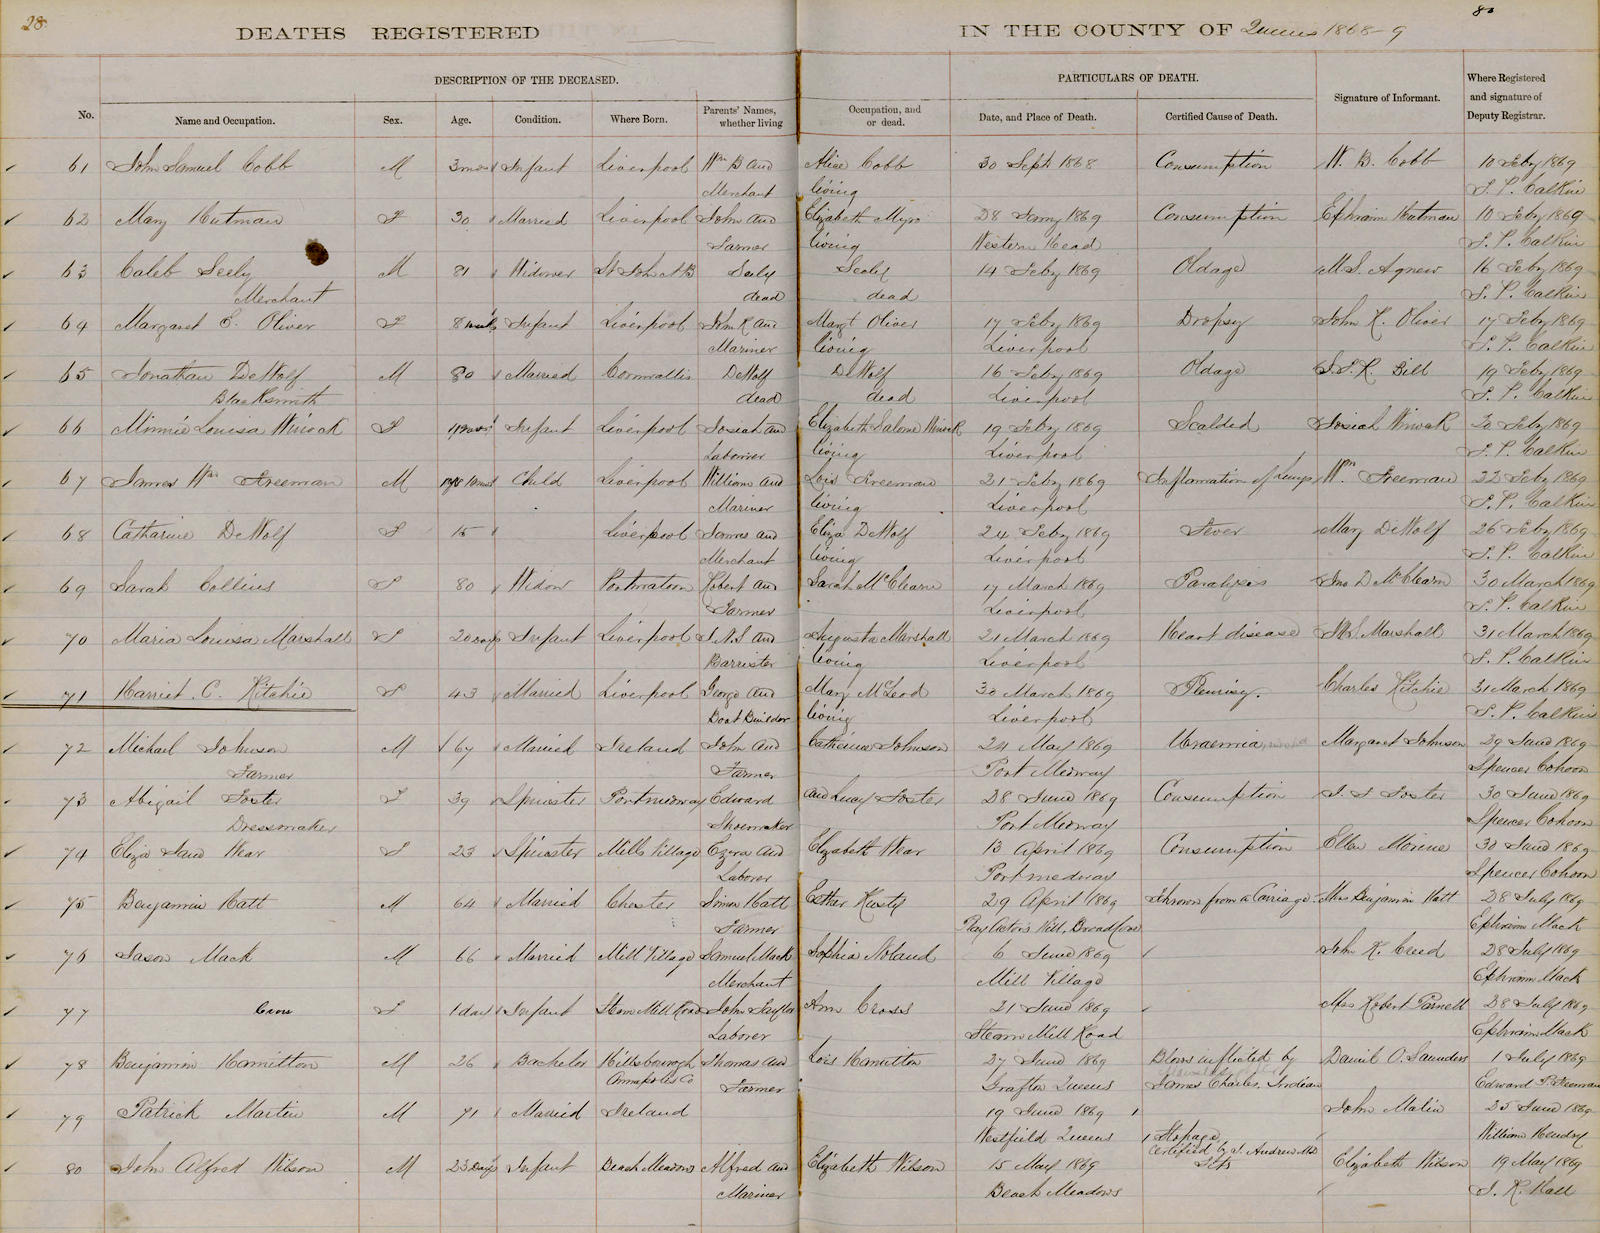 28
80
DEATHS REGISTERED IN THE COUNTY OF Queens 1868-9
DESCRIPTION OF THE DECEASED. PARTICULARS OF DEATH.
No. Name and Occupation. Sex. Age. Condition. Where Born. Parents' Names, whether living Occupation, and or dead. Date, and Place of Death. Certified Cause of Death. Signature of Informant. Where Registered and signature of Deputy Registrar.
61 John Samuel Cobb M 3 mos Infant Liverpool Wm B and Alice Cobb 30 Sept 1868 Consumption W. B. Cobb 10 Feby 1869
Merchant living S. P. Calkin
62 Mary Hutman F 30 Married Liverpool John and Elizabeth Myra 28 Jany 1869 Consumption Ephraim Hutman 10 Feby 1869
Farmer living Western Head S. P. Calkin
63 Caleb Seely M 81 Widower St John NB Seely Seely 14 Feby 1869 Oldage M.S. Agnew 16 Feby 1869
Merchant dead dead S. P. Calkin
64 Margaret E. Oliver F 8 Infant Liverpool John R and Margt Oliver 17 Feby 1869 Dropsy John R. Oliver 17 Feby 1869
Mariner living Liverpool S. P. Calkin
65 Jonathan DeWolf M 80 Married Cornwallis DeWolf DeWolf 16 Feby 1869 Oldage S.S.R. Bill 19 Feby 1869
Blacksmith dead dead Liverpool S. P. Calkin
66 Minnie Louisa Winock F Infant Liverpool Josiah an Elizabeth Salome Winock 19 Feby 1869 Scalded Josiah Winock 20 Feby 1869
Laborer living Liverpool S. P. Calkin
67 James Wm Freeman M Child Liverpool William and Lois Freeman 21 Feby 1869 Inflamation of Lungs Wm. Freeman 22 Feby 1869
Mariner living Liverpool S. P. Calkin
68 Catharine DeWolf F 15 Liverpool James and Eliza DeWolf 24 Feby 1869 Fever Mary DeWolf 26 Feby 1869
Merchant living Liverpool S. P. Calkin
69 Sarah Collins F 80 Widow Robert and Sarah McClearn 17 March 1869 Paralysis Jno D McClearn 30 March 1869
Farmer Liverpool S. P. Calkin
70 Maria Louisa Marshall F 20 days Infant Liverpool J.N.S and Augusta Marshall 21 March 1869 Heart disease Marshall 31 March 1869
Barrister living Liverpool S. P. Calkin
71 Harriet C. Ritchie F 43 Married Liverpool George and Mary McLeod 30 March 1869 Pleurisy. Charles Ritchie 31 March 1869
Boat Builder living Liverpool S. P. Calkin
72 Michael Johnson M 67 Married Ireland John and Catherine Johnson 24 May 1869 Uraemia Margaret Johnson 29 June 1869
Farmer Farmer Port Medway Spencer Cohoon
73 Abigail Foster F 39 Spinster Portmedway Edward and Lucy Foster 28 June 1869 Consumption Foster 30 June 1869
Dressmaker Shoemaker Port Medway Spencer Cohoon
74 Eliza Jane Wear F 23 Spinster Mills Village Ezera and Elizabeth Wear 13 April 1869 Consumption Ellen Morine 30 June 1869
Laborer Portmedway Spencer Cohoon
75 Benjamin Hatt M 64 Married Chester Simon Hatt Esther Husty 29 April 1869 Thrown from a Carriage Mrs Benjamin Hatt 28 July 1869
Farmer Hill, Broad Cove Ephraim Mack
76 Jason Mack M 66 Married Mill Village Samuel Mack Sophia Noland 6 June 1869 John R. Creed 28 July 1869
Merchant Mill Village Ephraim Mack
77 Cross F 1 day Infant Steam Mill Road John Taylor Ann Cross 21 June 1869 Mrs Robert Parnell 28 July 1869
Laborer Steam Mill Road Ephraim Mack
78 Benjamin Hamilton M 26 Bachelor Hillsborough Thomas and Lois Hamilton 27 June 1869 Blows inflicted by Daniel O. Saunders 1 July 1869
Annapolis Co Farmer Grafton Queens James Charles, Indian Edward Freeman
79 Patrick Martin M 71 Married Ireland 19 June 1869 John Matin 25 June 1869
Westfield Queens Stopage William Hendry
Certified by J. Andrew MD
80 John Alfred Wilson M 23 Days Infant Beach Meadows Alfred and Elizabeth Wilson 15 May 1869 Fits Elizabeth Wilson 19 May 1869
Mariner Beach Meadows Hall